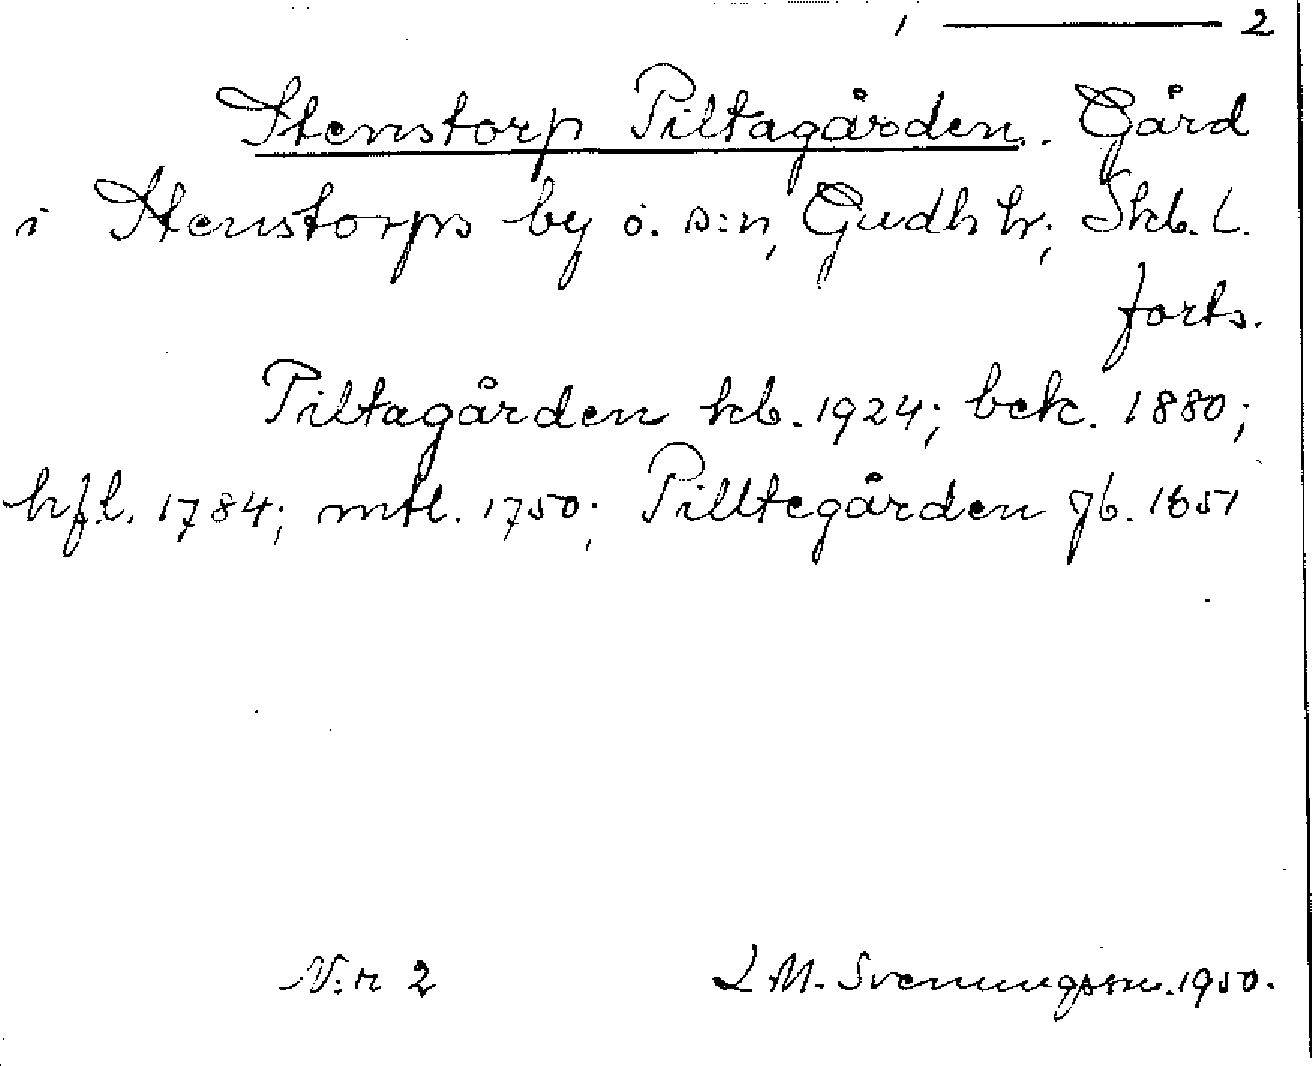 1 — 2
Stenstorp Piltagården. Gård
i Stenstorps by o. s:n, Gudh hr; Skb. L.
forts.
Piltagården kb. 1924; bek. 1880;
hfl. 1784; mtl. 1750; Pilltegården jb. 1651
N:r 2 L M. Svenungsson. 1950.